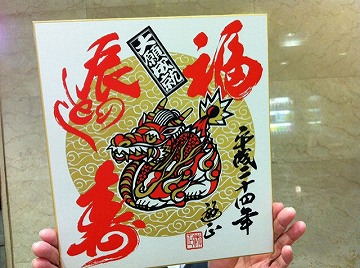 福
大願成就
辰のとし
寿
平成二十四年